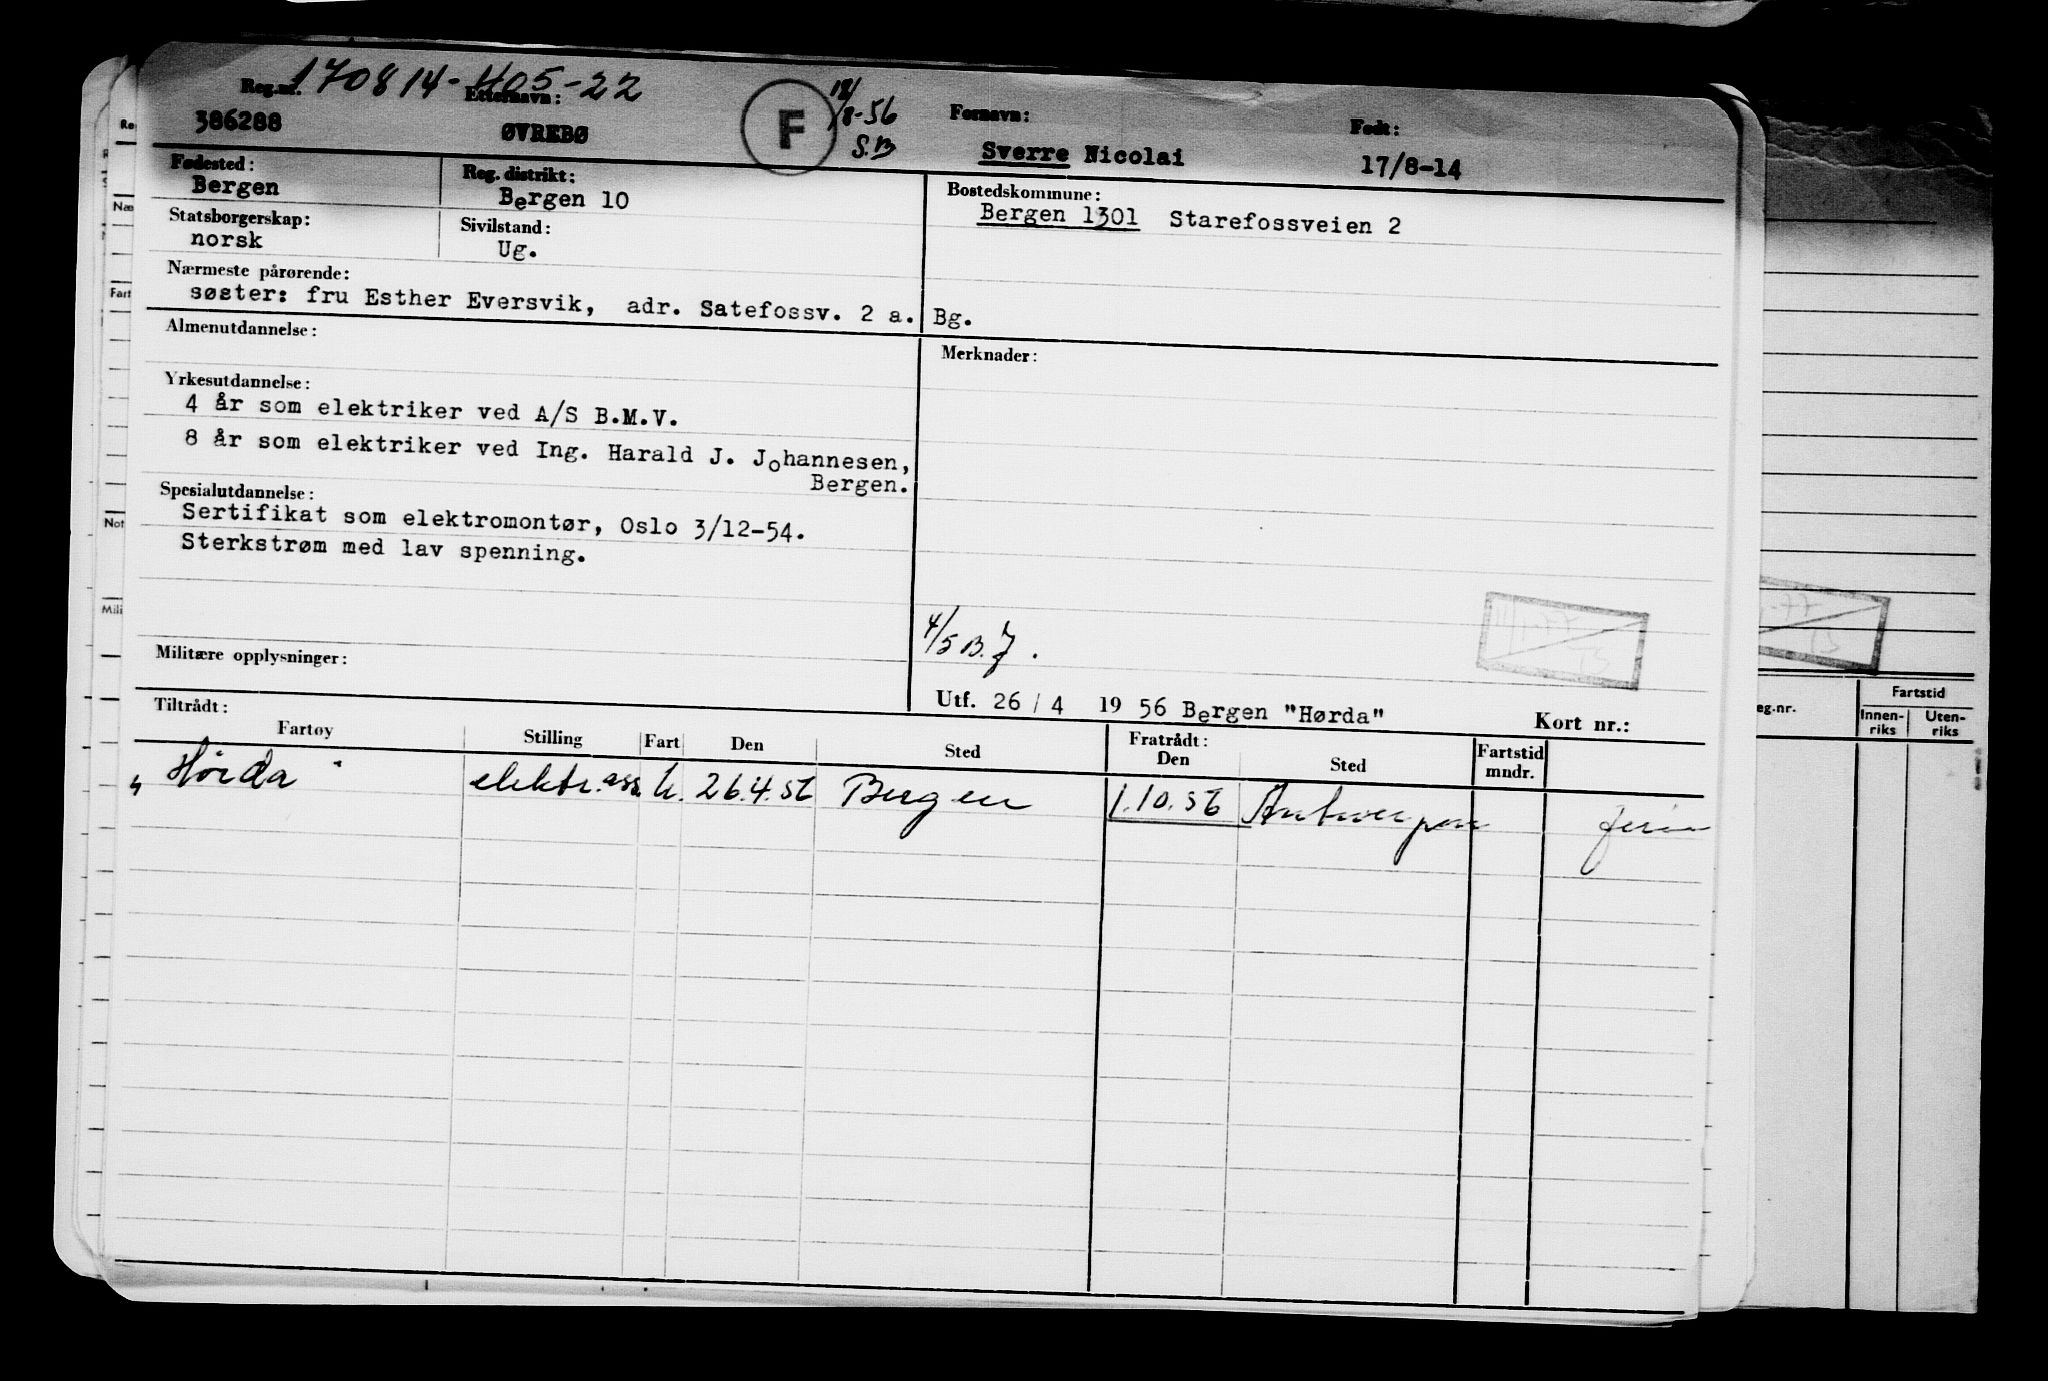 170814-405-22
Reg.nr.
386288
Etternavn:
ØVREBØ
F
18/8-56
S.B
Fornavn:
Sverre Nicolai
Født:
17/8-14
Fødested:
Bergen
Reg. distrikt:
Bergen 10
Bostedskommune:
Bergen 1301 Starefossveien 2
Statsborgerskap:
norsk
Sivilstand:
Ug.
Nærmeste pårørende:
søster: fru Esther Eversvik, adr. Satefossv. 2 a. Bg.
Almenutdannelse:
Merknader:
Yrkesutdannelse:
4 år som elektriker ved A/S B.M.V.
8 år som elektriker ved Ing. Harald J. Johannesen,
Bergen.
Spesialutdannelse:
Sertifikat som elektromontør, Oslo 3/12-54.
Sterkstrøm med lav spenning.
4/5 B.J.
Militære opplysninger:
Utf. 26 / 4 19 56 Bergen "Hørda"
Kort nr.:
Tiltrådt:
Fratrådt:
Fartøy Stilling Fart Den Sted Den Sted Fartstid mndr.
"Hørda" elektr.ass. u. 26.4.56 Bergen 1.10.56 Antwerpen ferie
Fartstid
eg.nr.
Innen-
riks
Uten-
riks